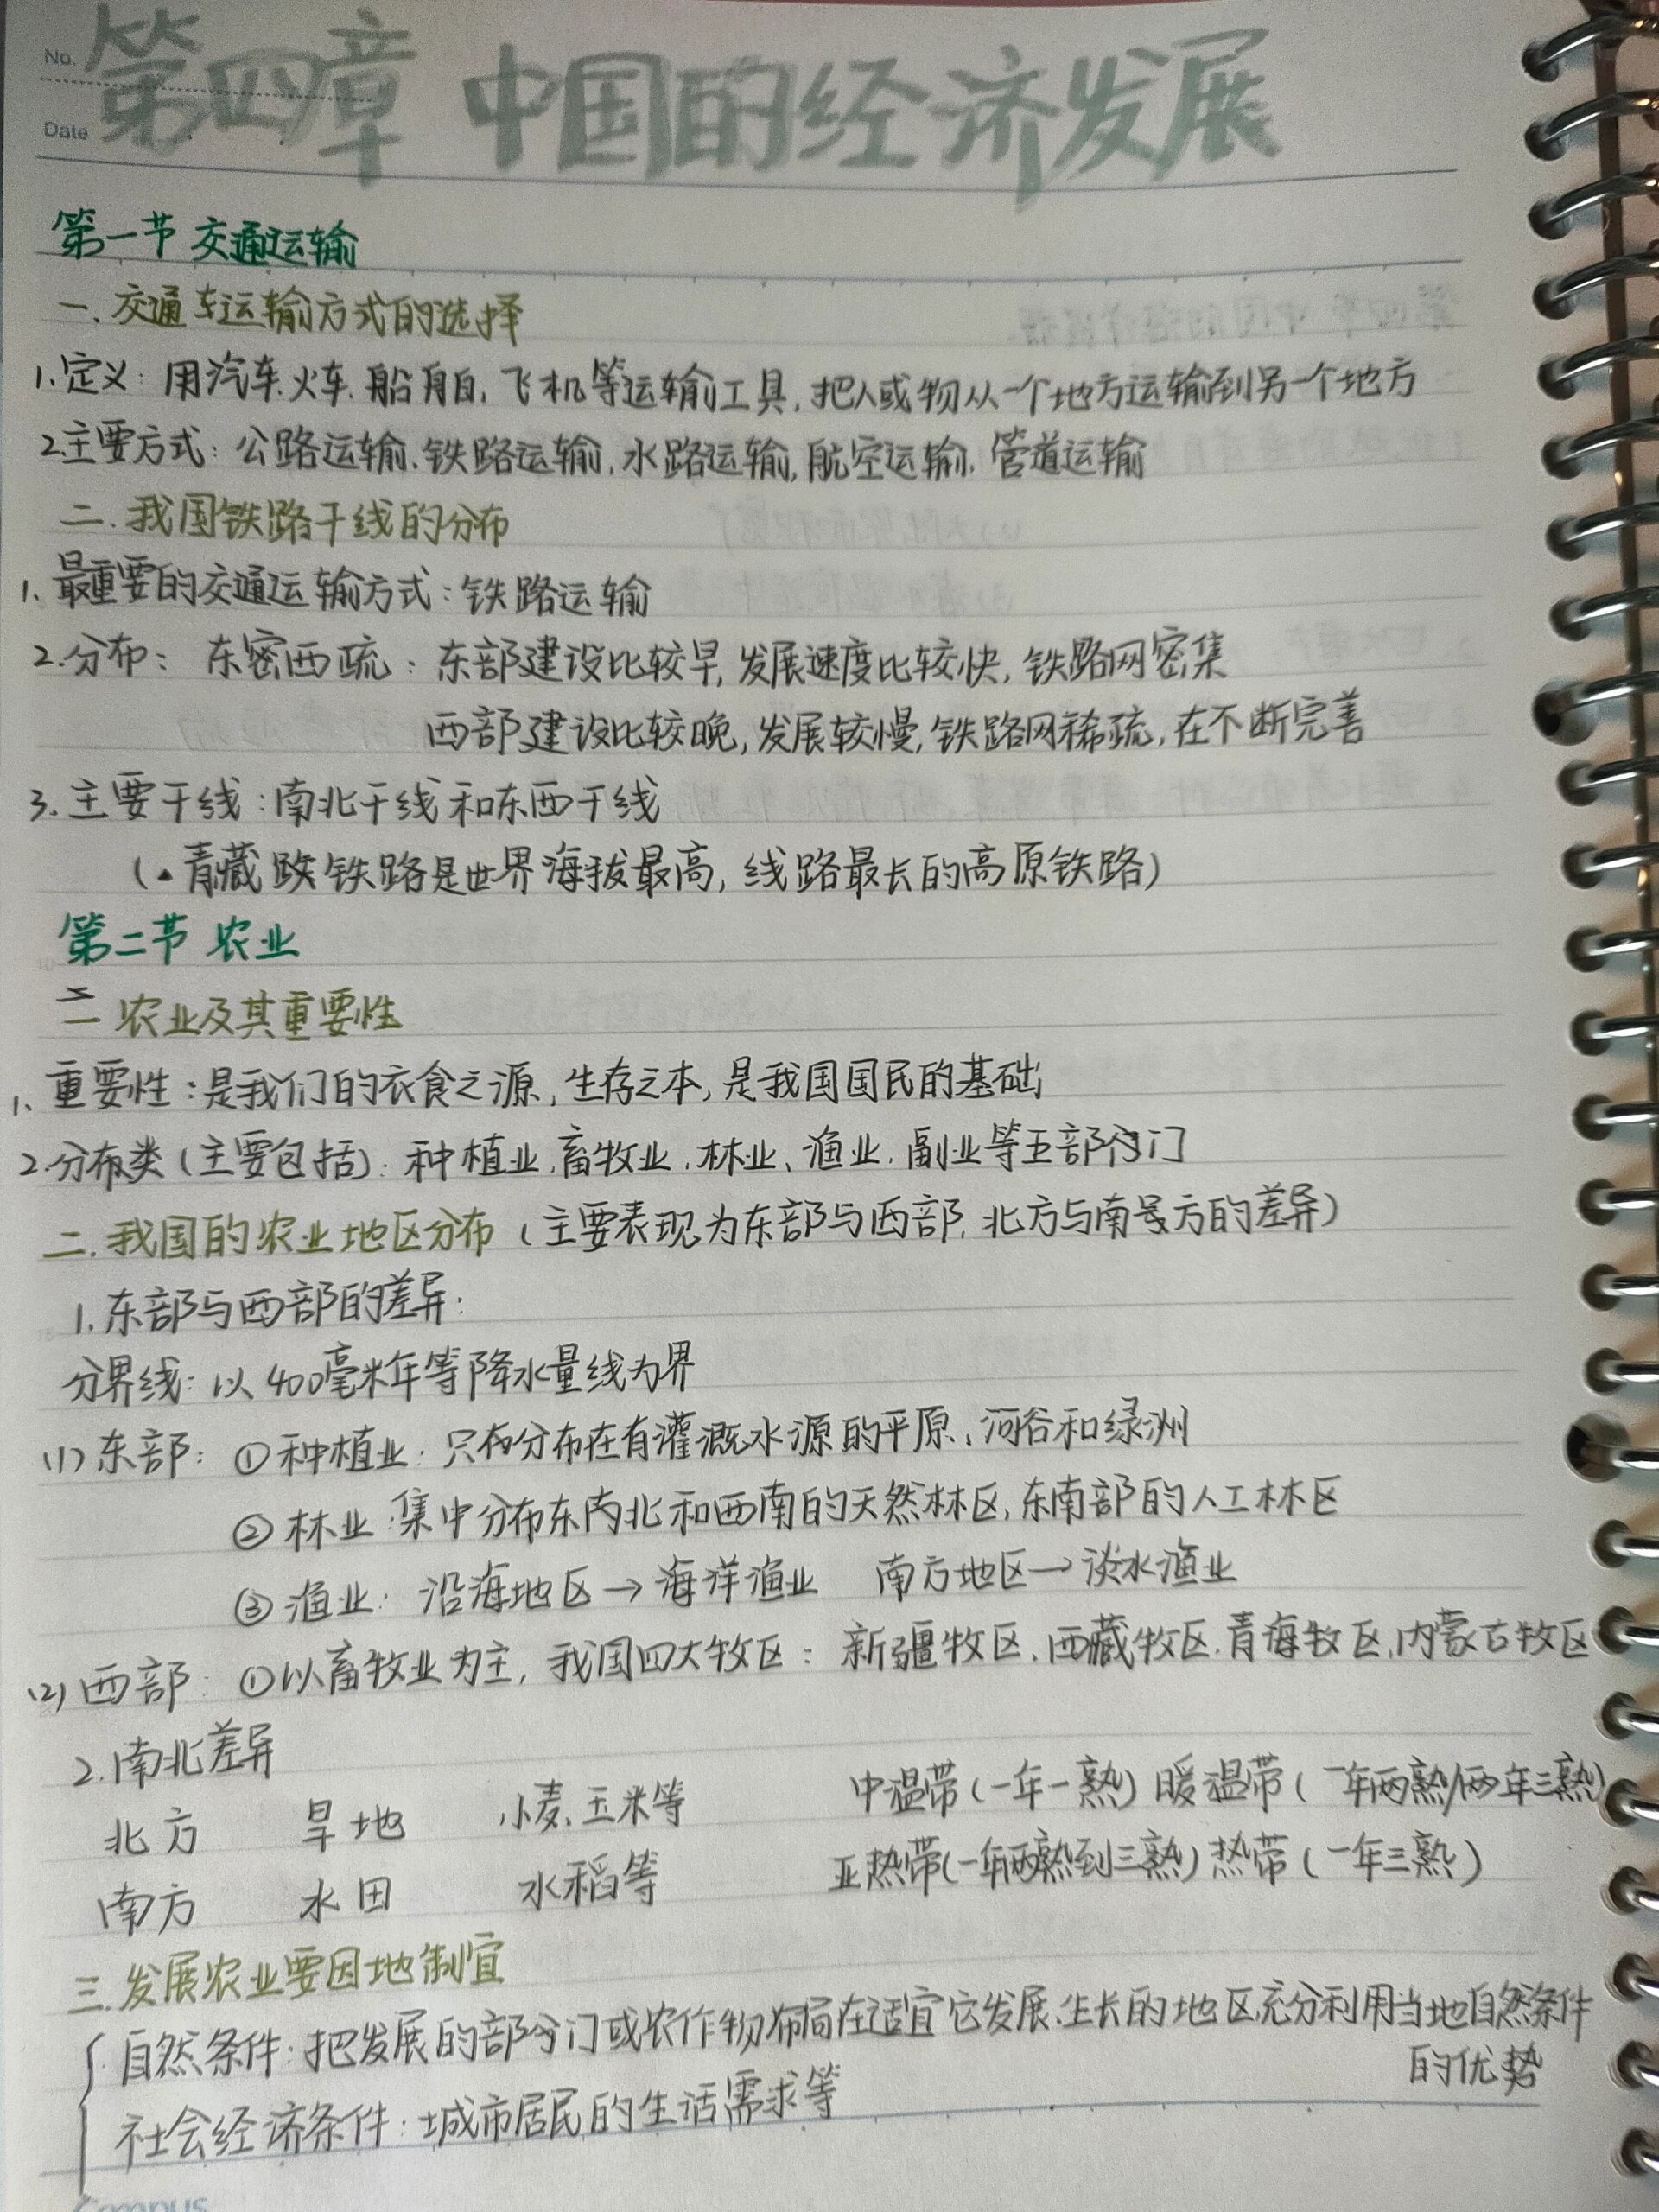 No.
Date
第四章 中国的经济发展
第一节 交通运输
一. 交通运输方式的选择
1.定义: 用汽车.火车.船舶, 飞机等运输工具, 把人或物从一个地方运输到另一个地方
2.主要方式: 公路运输.铁路运输,水路运输,航空运输. 管道运输
二. 我国铁路干线的分布
1. 最重要的交通运输方式: 铁路运输
2.分布: 东密西疏: 东部建设比较早, 发展速度比较快, 铁路网密集
西部建设比较晚, 发展较慢, 铁路网稀疏, 在不断完善
3. 主要干线: 南北干线和东西干线
(▲青藏铁路是世界海拔最高, 线路最长的高原铁路)
第二节 农业
一 农业及其重要性
1、重要性: 是我们的衣食之源, 生存之本, 是我国国民的基础
2.分类(主要包括): 种植业.畜牧业.林业、渔业.副业等五部门
二. 我国的农业地区分布 (主要表现为东部与西部, 北方与南方的差异)
1.东部与西部的差异:
分界线: 以400毫米年等降水量线为界
(1) 东部: ①种植业: 只有分布在有灌溉水源的平原、河谷和绿洲
②林业: 集中分布东北和西南的天然林区, 东南部的人工林区
③渔业: 沿海地区→海洋渔业 南方地区→淡水渔业
(2) 西部: ①以畜牧业为主, 我国四大牧区: 新疆牧区.西藏牧区.青海牧区,内蒙古牧区
2.南北差异
北方 旱地 小麦、玉米等 中温带(一年一熟) 暖温带(一年两熟/两年三熟)
南方 水田 水稻等 亚热带(一年两熟到三熟) 热带(一年三熟)
三.发展农业要因地制宜
自然条件: 把发展的部门或农作物布局在适宜它发展.生长的地区,充分利用当地自然条件
的优势
社会经济条件: 城市居民的生活需求等
Campus